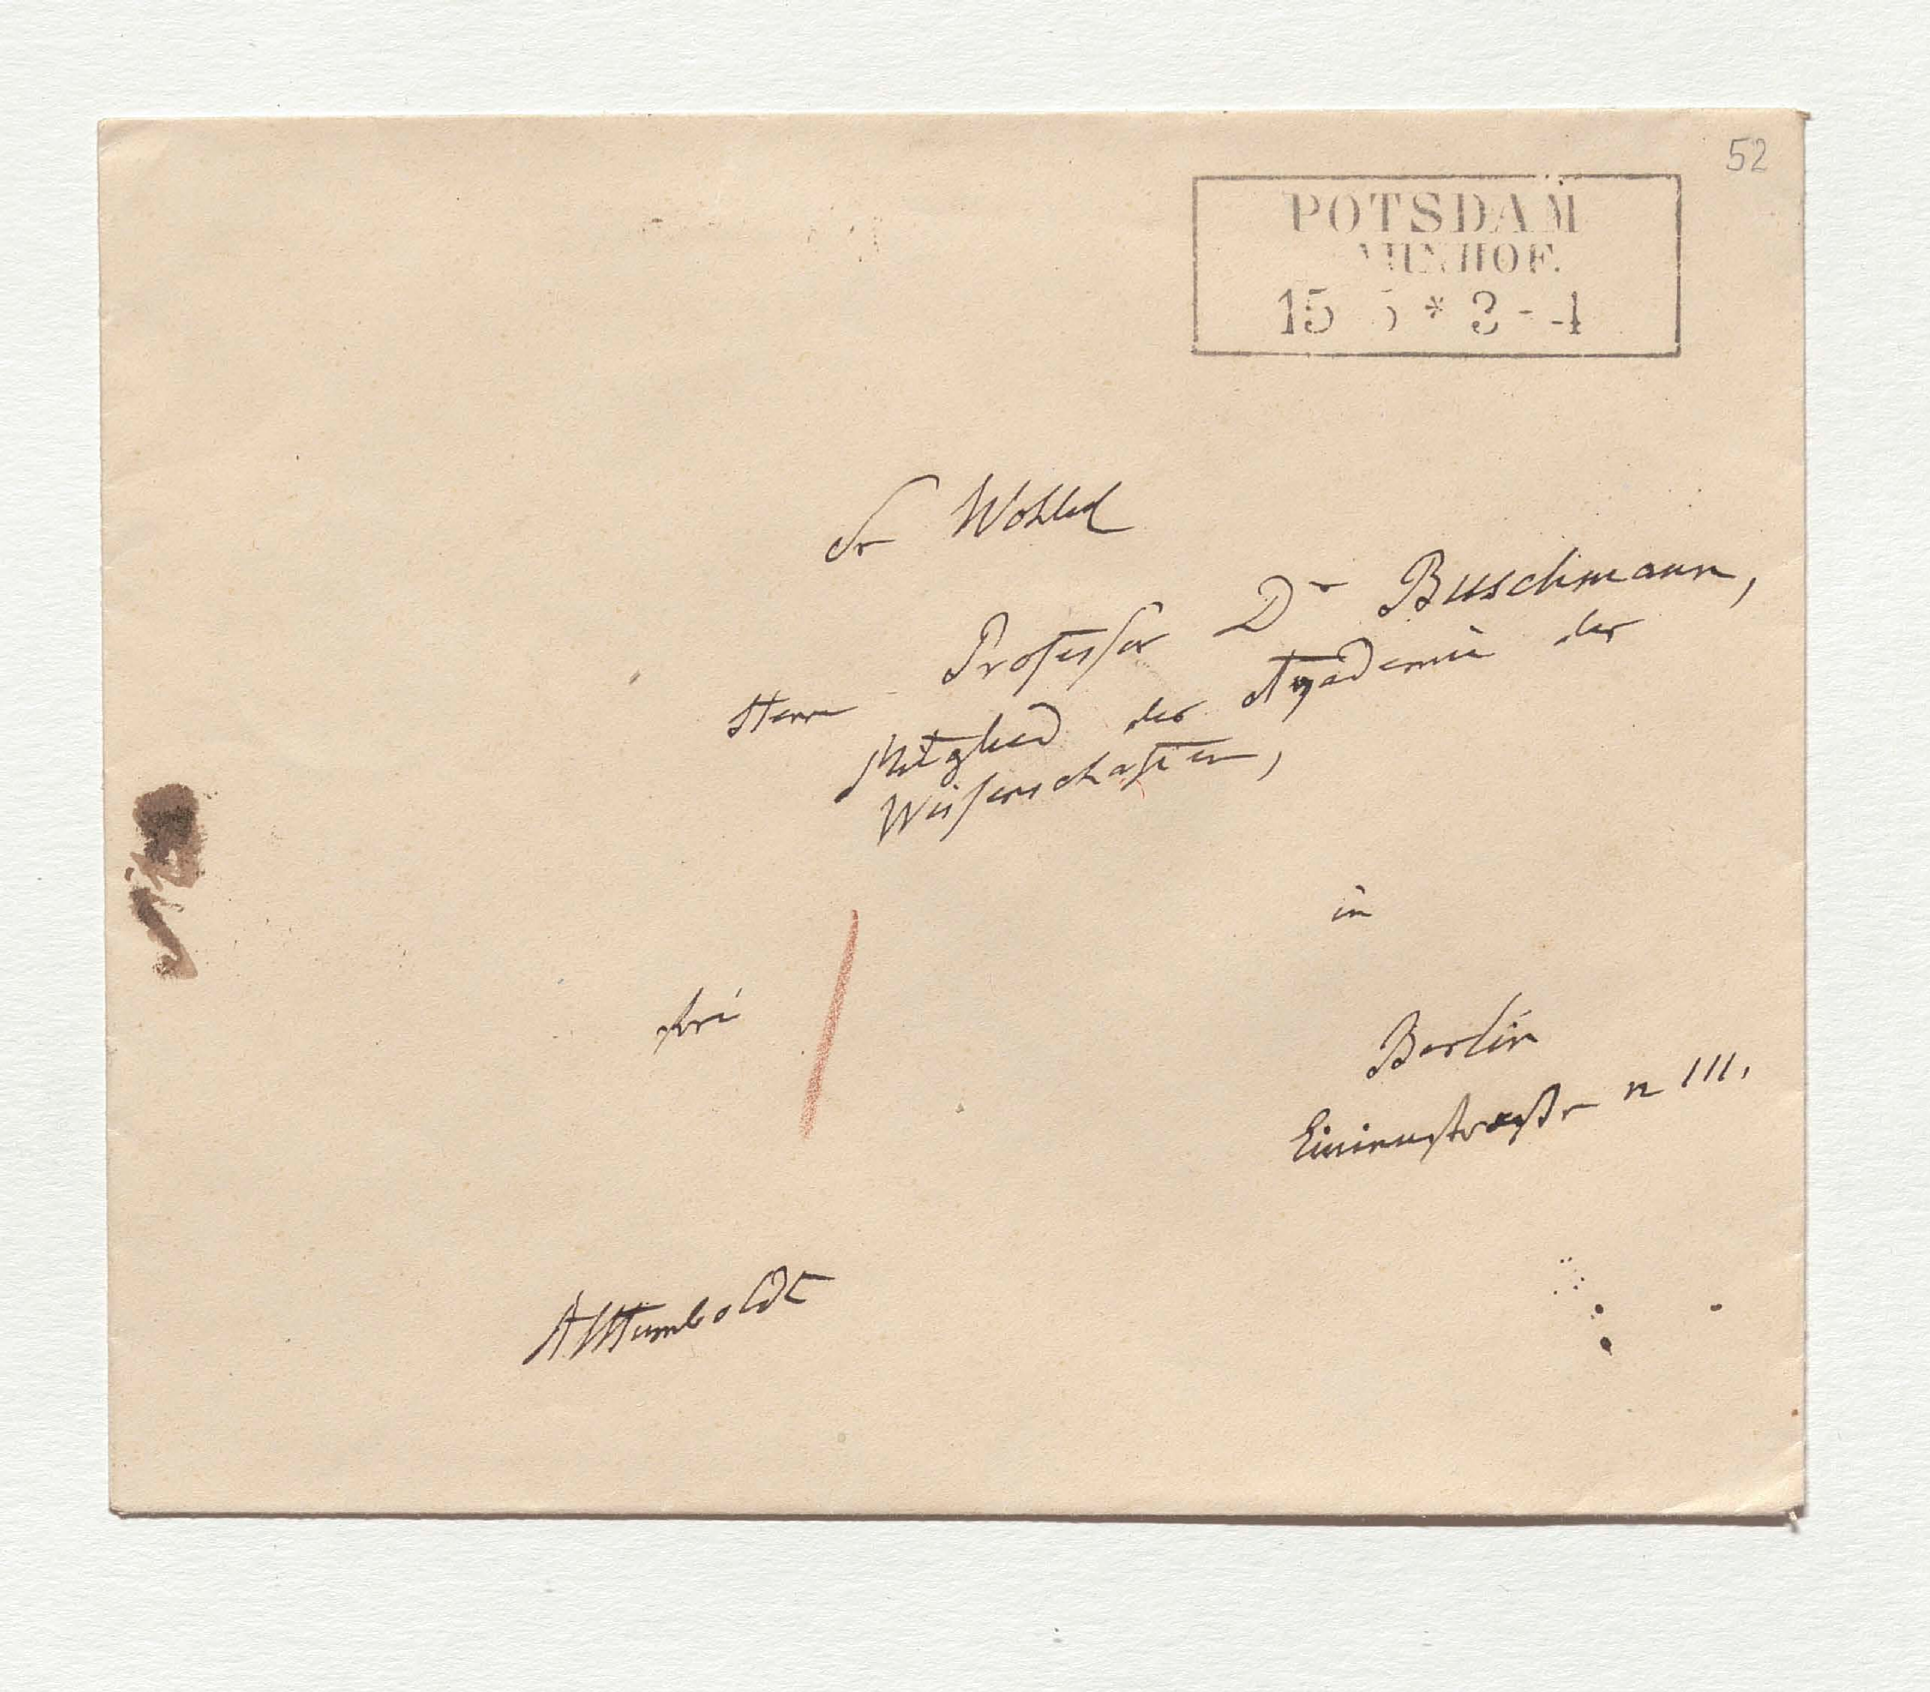 52
POTSDAM
AHNHOF.
15 5 * 3 - 4
Sr Wohlb
Herrn Professor Dr Buschmann,
Mitglied der Academie der
Wissenschaften,
in
frei
Berlin
Linienstraße n 111.
AvHumboldt